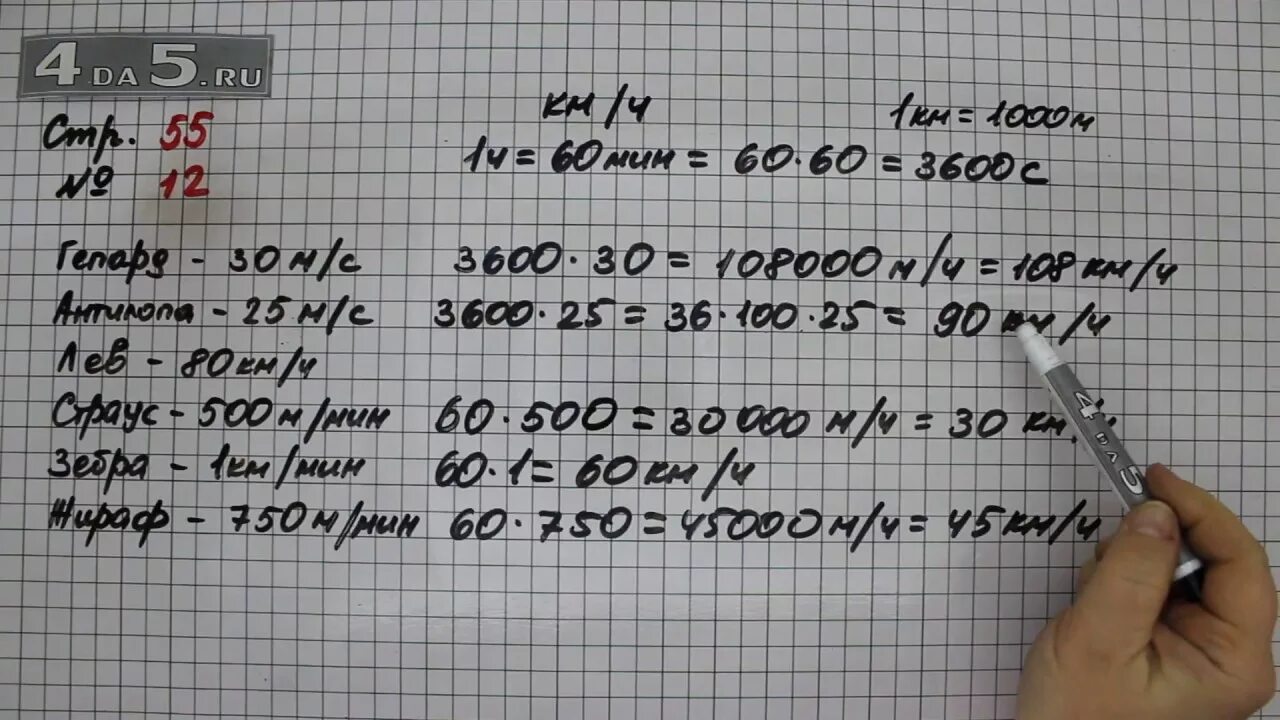 4DA5.RU
Стр. 55
№ 12
км/ч
1км = 1000м
1ч = 60мин = 60·60 = 3600с
Гепард - 30м/с 3600·30 = 108000м/ч = 108км/ч
Антилопа - 25м/с 3600·25 = 36·100·25 = 90км/ч
Лев - 80км/ч
Страус - 500м/мин 60·500 = 30000м/ч = 30 км
Зебра - 1км/мин 60·1 = 60км/ч
Жираф - 750м/мин 60·750 = 45000м/ч = 45км/ч
4 5